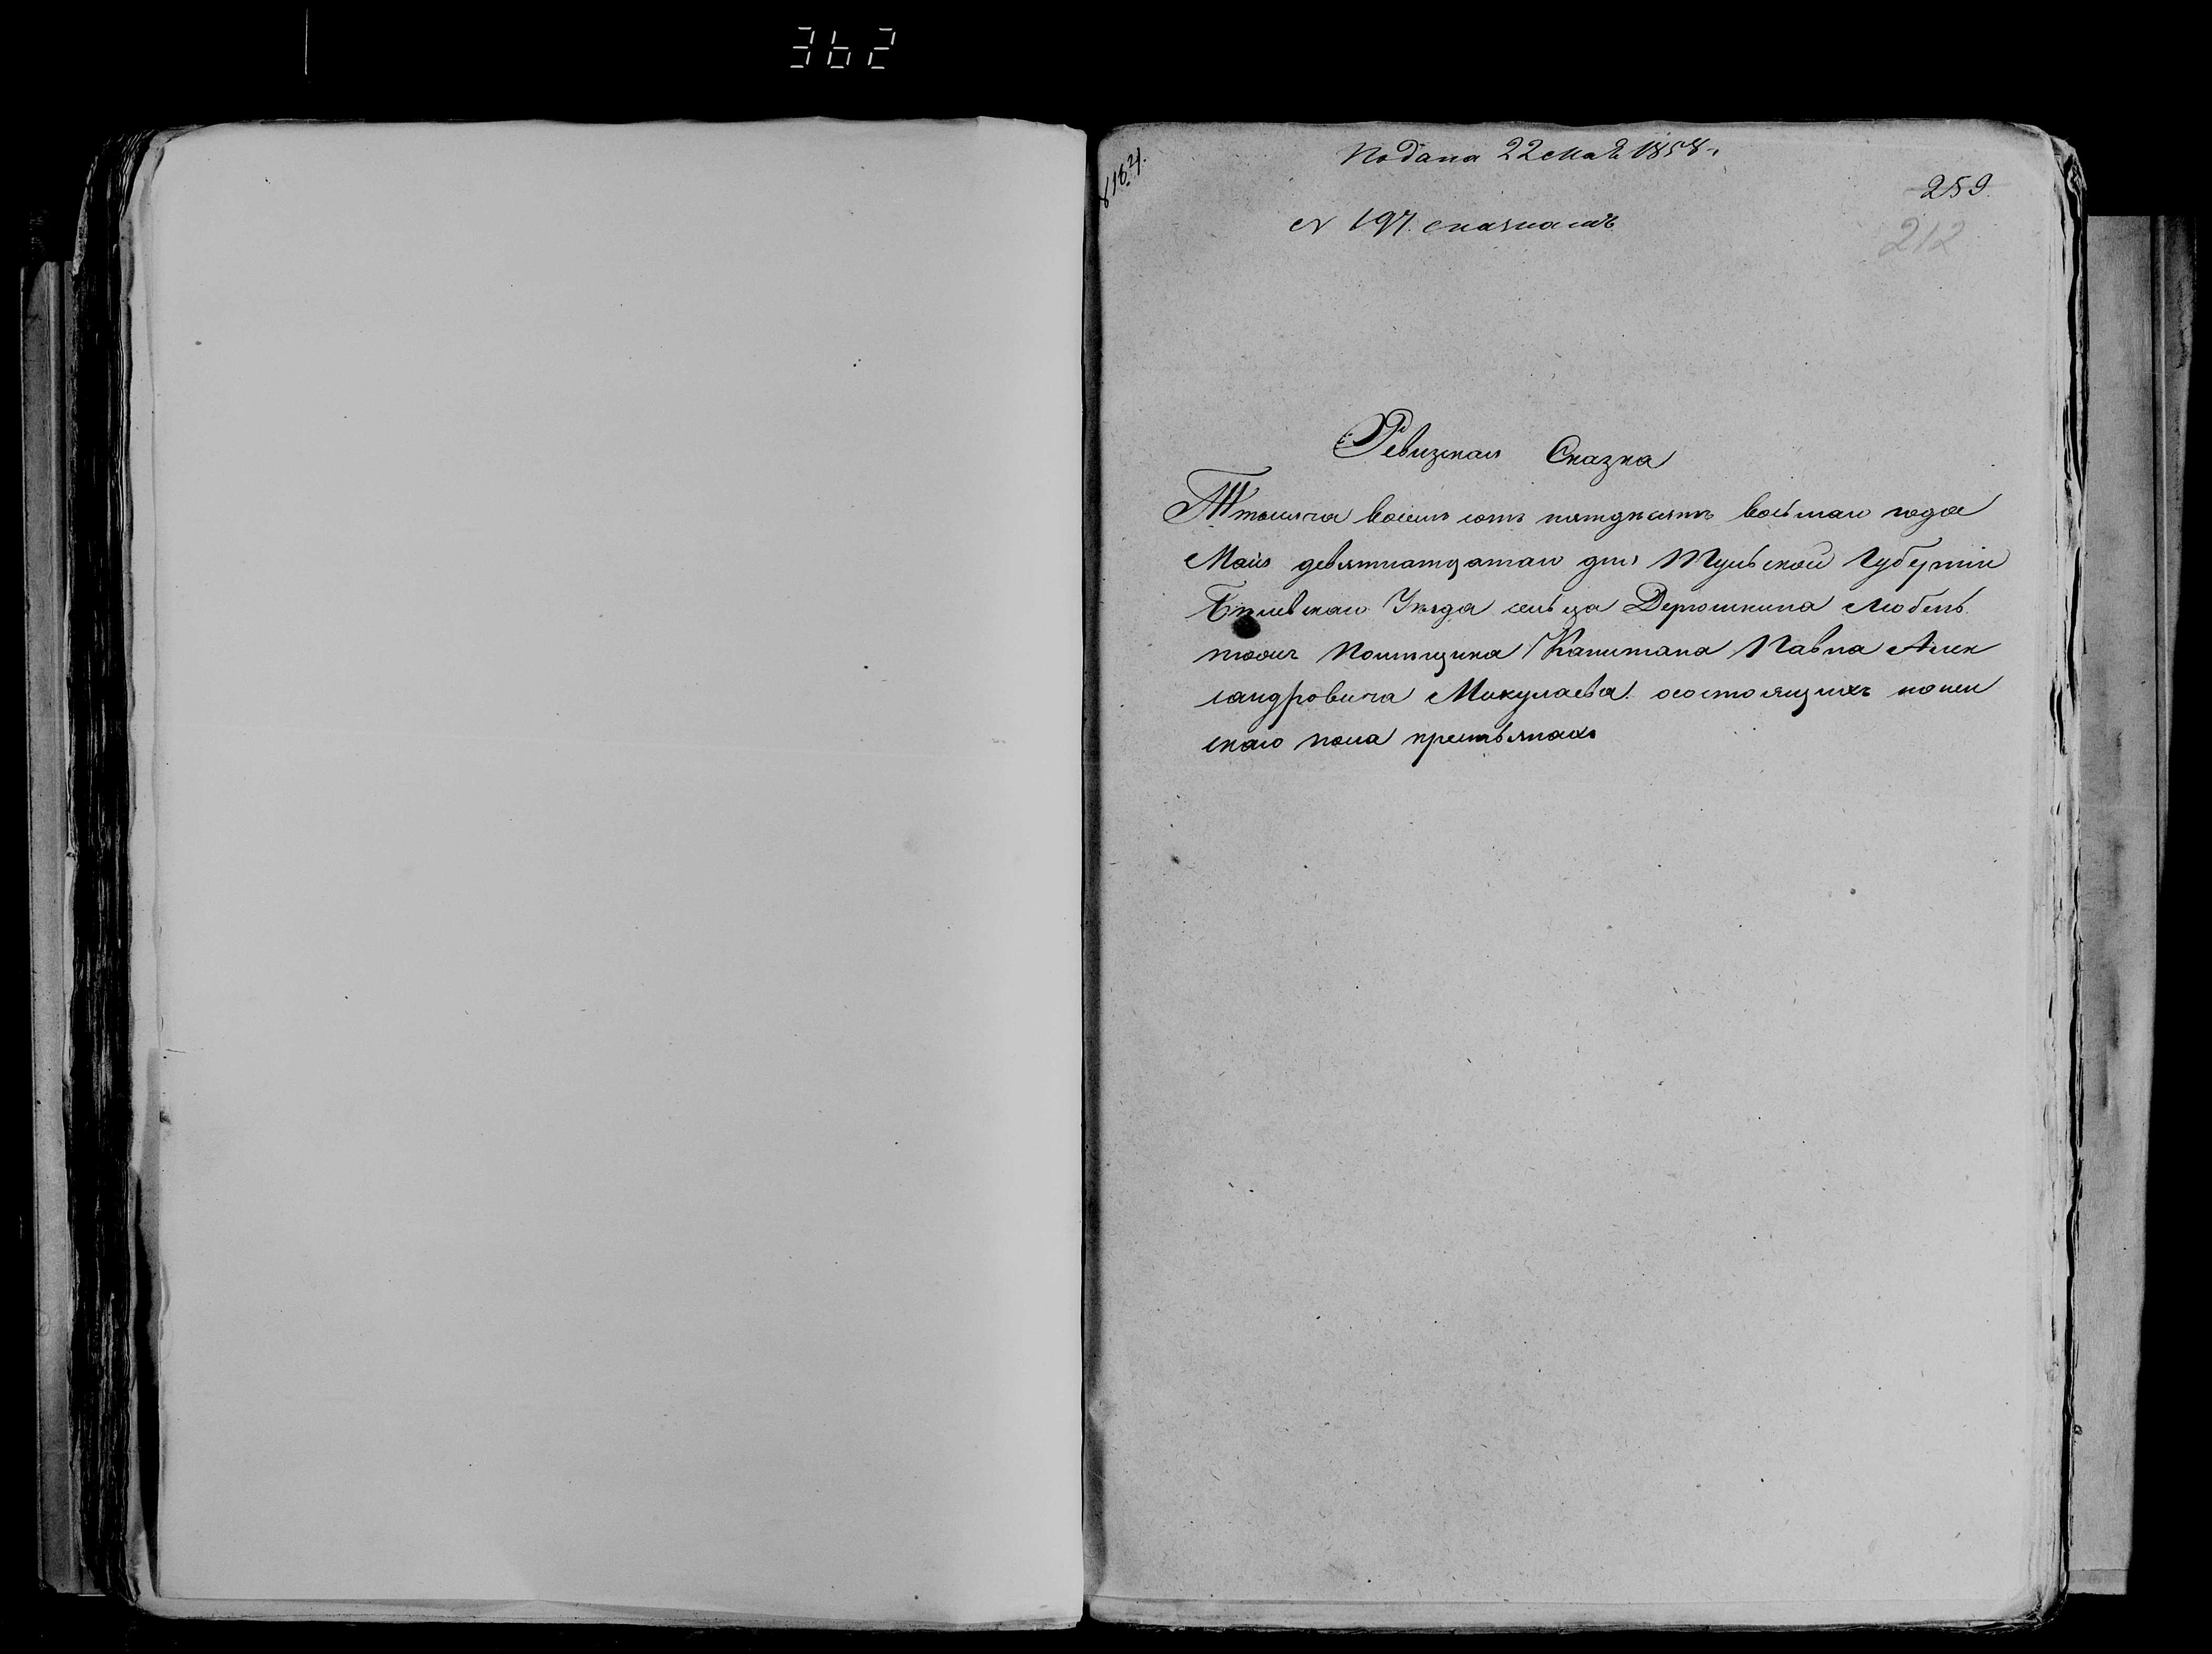 362
Подана 22 Мая 1858 г.
259
№ 197. сказка
212
Ревизкая Сказка
Тысяча восемь сотъ пятдѣсятъ восьмаго года
Маія девятнатдатаго дня Тульской Губерніи
Бѣлевскаго Уѣзда сельца Дерюшкина Любень
тожъ Помѣщика Капитана Павла Алек
сандровича Микулаева о состоящихъ
скаго пола крестьянахъ